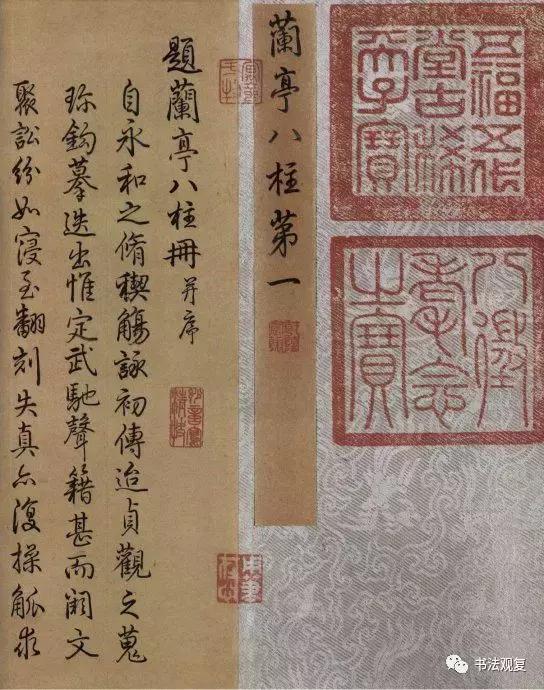 五福五代
堂古稀
天子寶
八徵
耄念
之寶
蘭亭八柱第一
題蘭亭八柱冊 并序
自永和之脩稧觴詠初傳迨貞觀之蒐
珎鈎摹迭出惟定武馳聲籍甚而闕文
聚訟紛如寖至翻刻失真亦復操觚求
书法观复